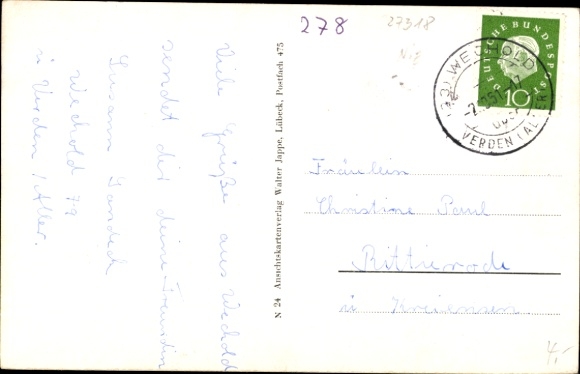 278
27318
Viele Grüße aus Wechold
sendet dir deine Freundin
Susann
Wechold 79
ü Verden / Aller.
N 24 Ansichtskartenverlag Walter Jappe, Lübeck, Postfach 475
DEUTSCHE BUNDESPOST
10
WECHOLD
VERDEN (ALLER)
Fräulein
Christine Paul
Rittierode
ü Kreiensen
4,-